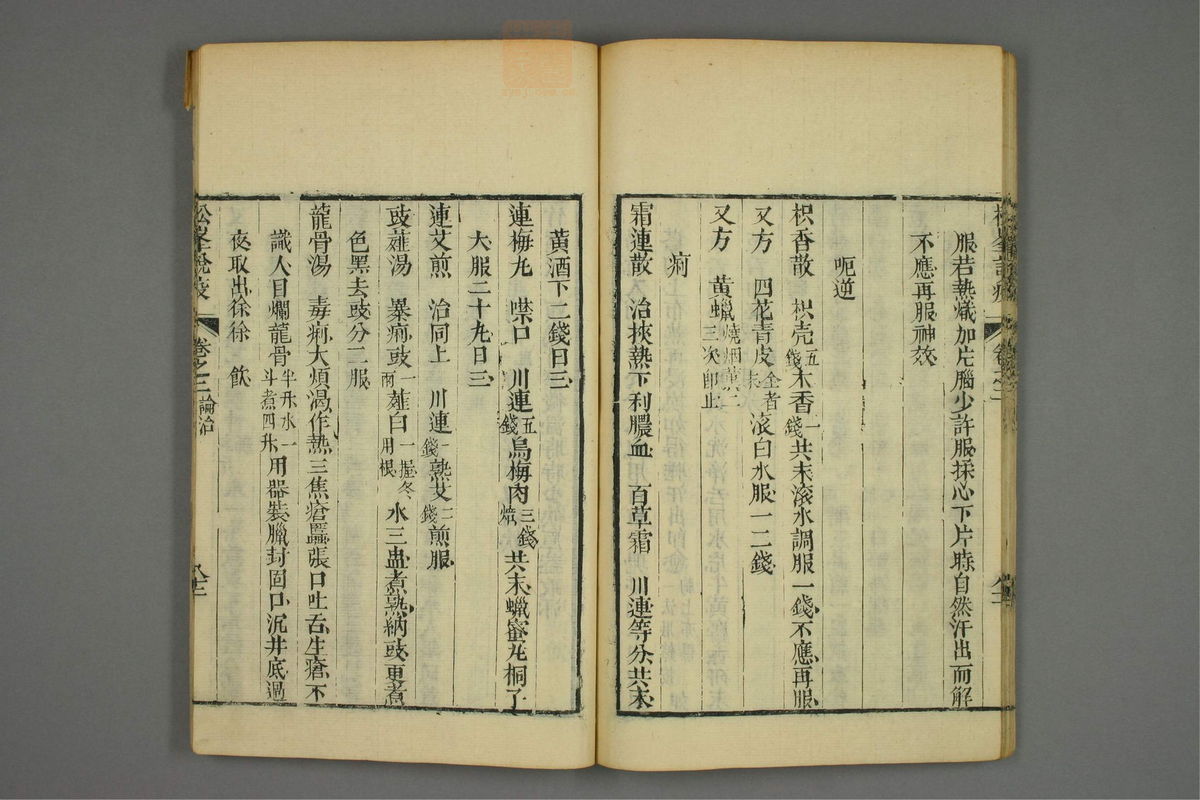 服若熱熾加片腦少許服揉心下片時自然汗出而解
不應再服神效
呃逆
枳香散 枳壳五錢木香一錢共末滾水調服一錢不應再服
又方 四花青皮全者末滾白水服一二錢
又方 黄蠟燒烟薰二三次即止
痢
霜連散 治挾熱下利膿血 百草霜 川連等分共末
黄酒下二錢日三
連梅丸 噤口 川連五錢烏梅肉三錢焙共末蠟蜜丸桐子
大服二十丸日三
連艾煎 治同上 川連一錢熟艾二錢煎服
豉薤湯 暴痢豉一兩薤白一握冬用根水三盅煮熟納豉更煮
色黑去豉分二服
龍骨湯 毒痢大煩渴作熱三焦瘡䘌張口吐舌生瘡不
識人目爛龍骨半斤水一斗煮四升用器裝臘封固口沉井底過
夜取出徐徐 飲
松峯說疫
卷之三
論治